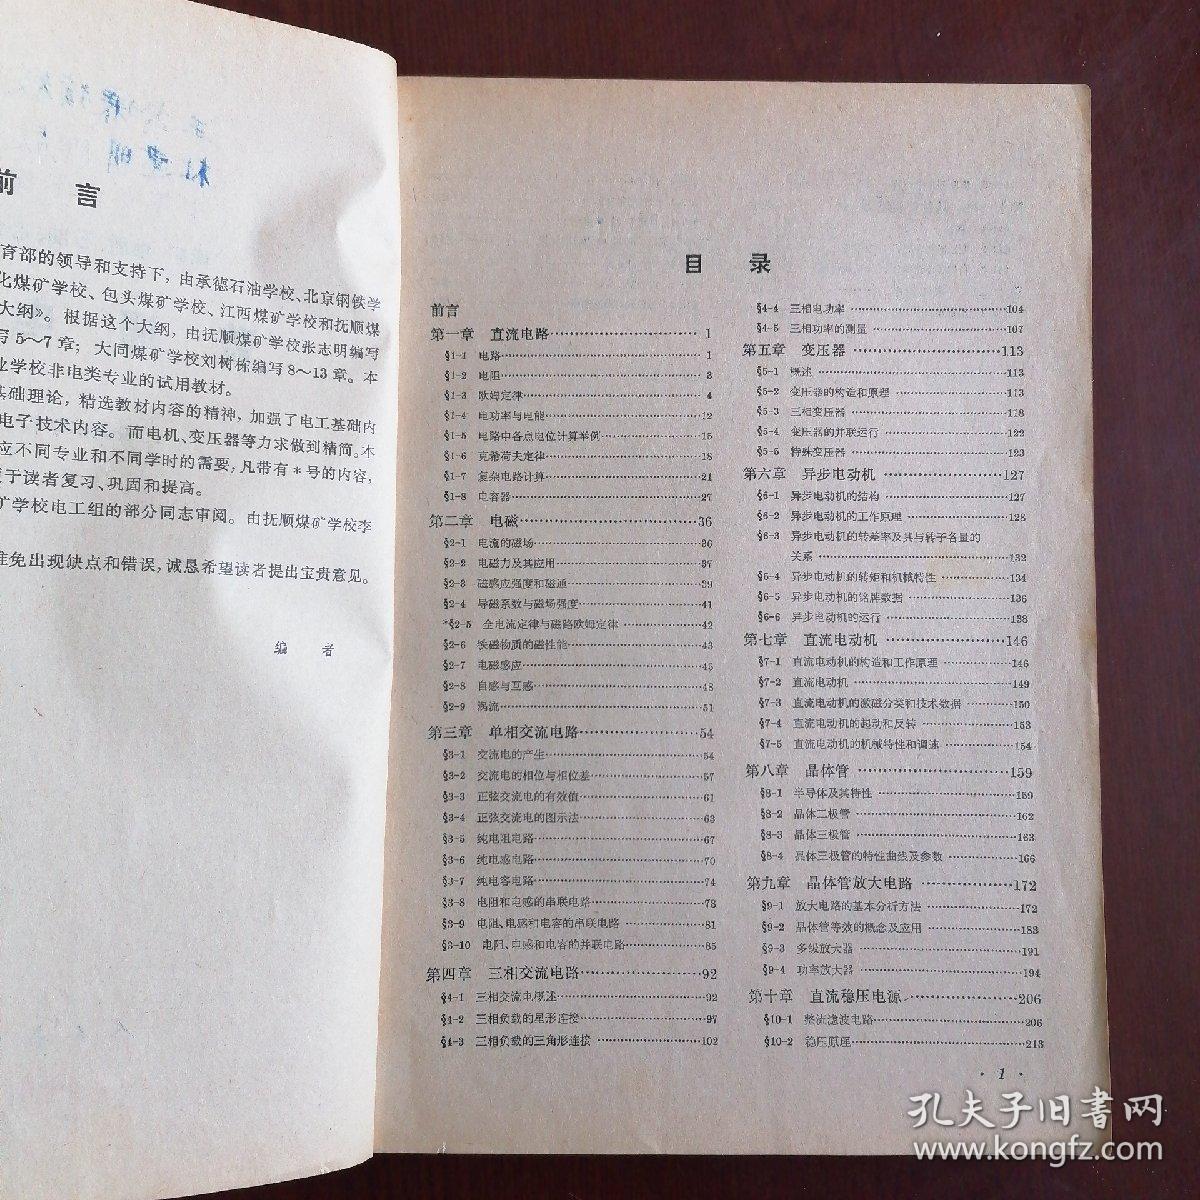 前 言
育部的领导和支持下，由承德石油学校、北京钢铁学
化煤矿学校、包头煤矿学校、江西煤矿学校和抚顺煤
大纲》。根据这个大纲，由抚顺煤矿学校张志明编写
写5～7章；大同煤矿学校刘树栋编写8～13章。本
业学校非电类专业的试用教材。
基础理论，精选教材内容的精神，加强了电工基础内
电子技术内容。而电机、变压器等力求做到精简。本
应不同专业和不同学时的需要，凡带有*号的内容，
于读者复习、巩固和提高。
矿学校电工组的部分同志审阅。由抚顺煤矿学校李
难免出现缺点和错误，诚恳希望读者提出宝贵意见。
编 者
目 录
前言
第一章 直流电路 1
§1-1 电路 1
§1-2 电阻 3
§1-3 欧姆定律 4
§1-4 电功率与电能 12
§1-5 电路中各点电位计算举例 15
§1-6 克希荷夫定律 18
§1-7 复杂电路计算 21
§1-8 电容器 27
第二章 电磁 36
§2-1 电流的磁场 36
§2-2 电磁力及其应用 37
§2-3 磁感应强度和磁通 39
§2-4 导磁系数与磁场强度 41
*§2-5 全电流定律与磁路欧姆定律 42
§2-6 铁磁物质的磁性能 43
§2-7 电磁感应 45
§2-8 自感与互感 48
§2-9 涡流 51
第三章 单相交流电路 54
§3-1 交流电的产生 54
§3-2 交流电的相位与相位差 57
§3-3 正弦交流电的有效值 61
§3-4 正弦交流电的图示法 63
§3-5 纯电阻电路 67
§3-6 纯电感电路 70
§3-7 纯电容电路 74
§3-8 电阻和电感的串联电路 78
§3-9 电阻、电感和电容的串联电路 81
§3-10 电阻、电感和电容的并联电路 85
第四章 三相交流电路 92
§4-1 三相交流电概述 92
§4-2 三相负载的星形连接 97
§4-3 三相负载的三角形连接 102
§4-4 三相电功率 104
§4-5 三相功率的测量 107
第五章 变压器 113
§5-1 概述 113
§5-2 变压器的构造和原理 113
§5-3 三相变压器 118
§5-4 变压器的并联运行 122
§5-5 特殊变压器 123
第六章 异步电动机 127
§6-1 异步电动机的结构 127
§6-2 异步电动机的工作原理 128
§6-3 异步电动机的转差率及其与转子各量的
关系 132
§6-4 异步电动机的转矩和机械特性 134
§6-5 异步电动机的铭牌数据 136
§6-6 异步电动机的运行 138
第七章 直流电动机 146
§7-1 直流电动机的构造和工作原理 146
§7-2 直流电动机 149
§7-3 直流电动机的激磁分类和技术数据 150
§7-4 直流电动机的起动和反转 153
§7-5 直流电动机的机械特性和调速 154
第八章 晶体管 159
§8-1 半导体及其特性 159
§8-2 晶体二极管 162
§8-3 晶体三极管 163
§8-4 晶体三极管的特性曲线及参数 166
第九章 晶体管放大电路 172
§9-1 放大电路的基本分析方法 172
§9-2 晶体管等效的概念及应用 183
§9-3 多级放大器 191
§9-4 功率放大器 194
第十章 直流稳压电源 206
§10-1 整流滤波电路 206
§10-2 稳压原理 213
· 1 ·
孔夫子旧书网
www.kongfz.com